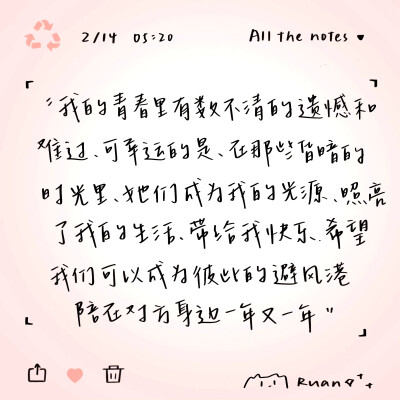 2/14 05:20 All the notes
"我的青春里有数不清的遗憾和
难过、可幸运的是、在那些昏暗的
时光里、她们成为我的光源、照亮
了我的生活、带给我快乐、希望
我们可以成为彼此的避风港
陪在对方身边一年又一年"
Ruan